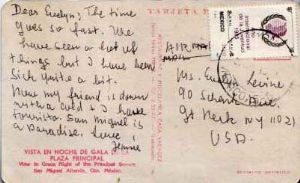 TARJETA
Dear Evelyn, The time
goes so fast. We
have seen a lot of
things but I have been
sick quite a bit.
Now my friend is down
with a cold & I have
tourista. San Miguel is
a Paradise. Love
Jeanie
MEXICO
Ms. Evelyn
90 Schenck
Gt Neck NY 11021
USA.
VISTA EN NOCHE DE GALA
PLAZA PRINCIPAL
View in Grace Night of the Principal
San Miguel Allende, Gto. México